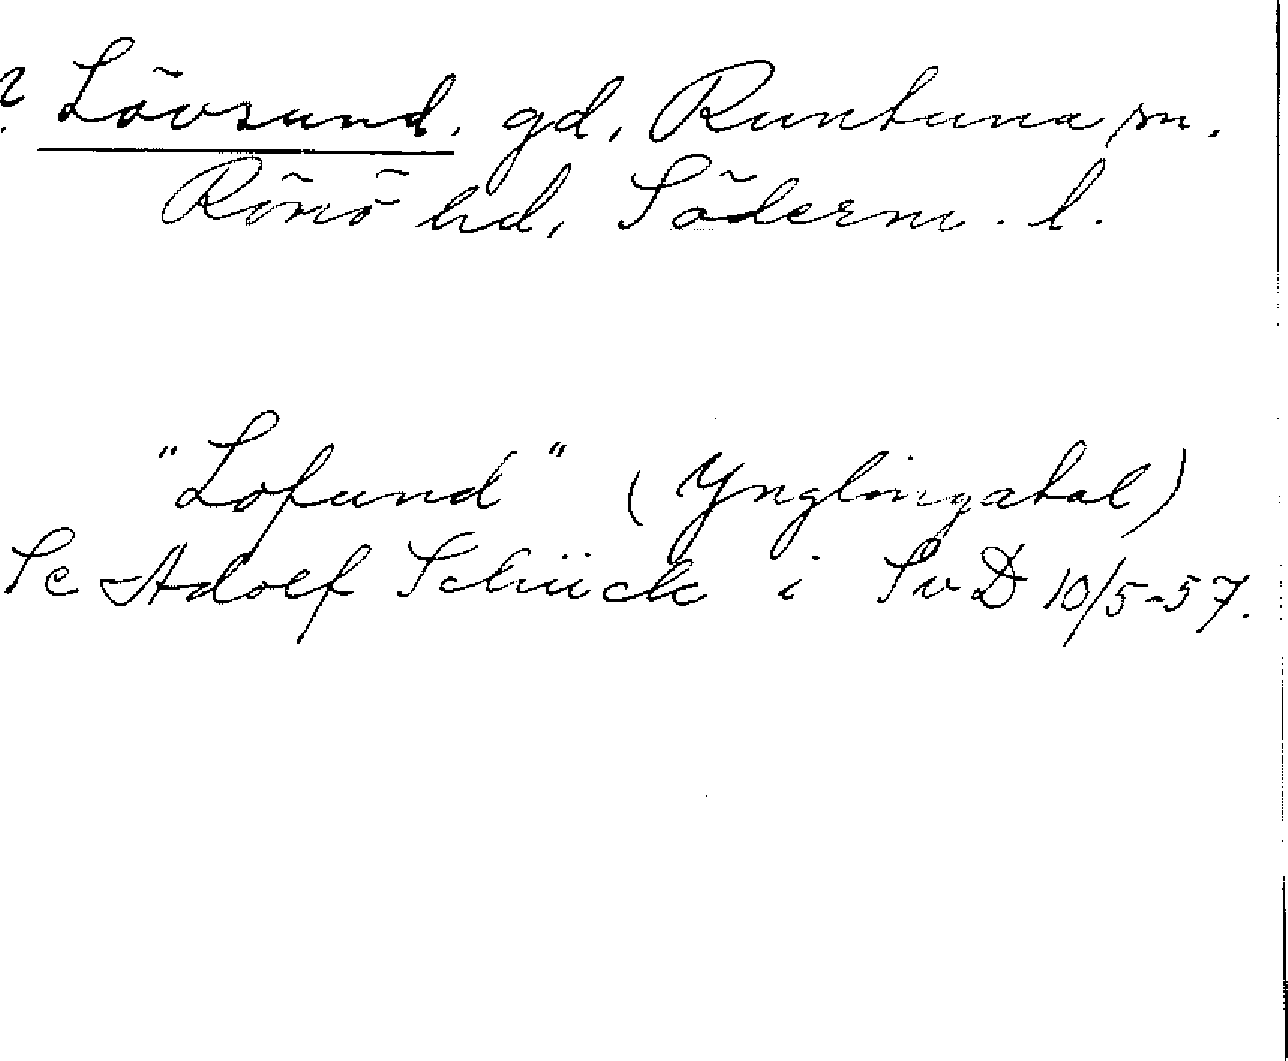 ? Lövsund. gd, Runtuna sn.
Rönö hd, Söderm. l.
"Lofund" (Ynglingatal)
Se Adolf Schück i SvD 10/5-57.